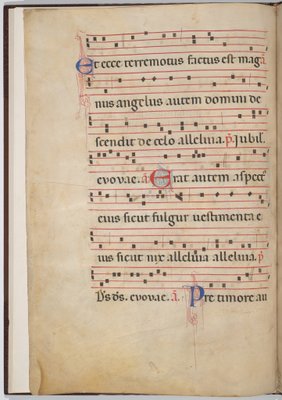 Et ecce terremotus factus est mag
nus angelus autem domini de
scendit de celo alleluia. p. Jubil.
evovae. a. Erat autem aspect
eius sicut fulgur vestimenta e
ius sicut nix alleluia alleluia. p
Ds ds. evovae. a. Pre timore au